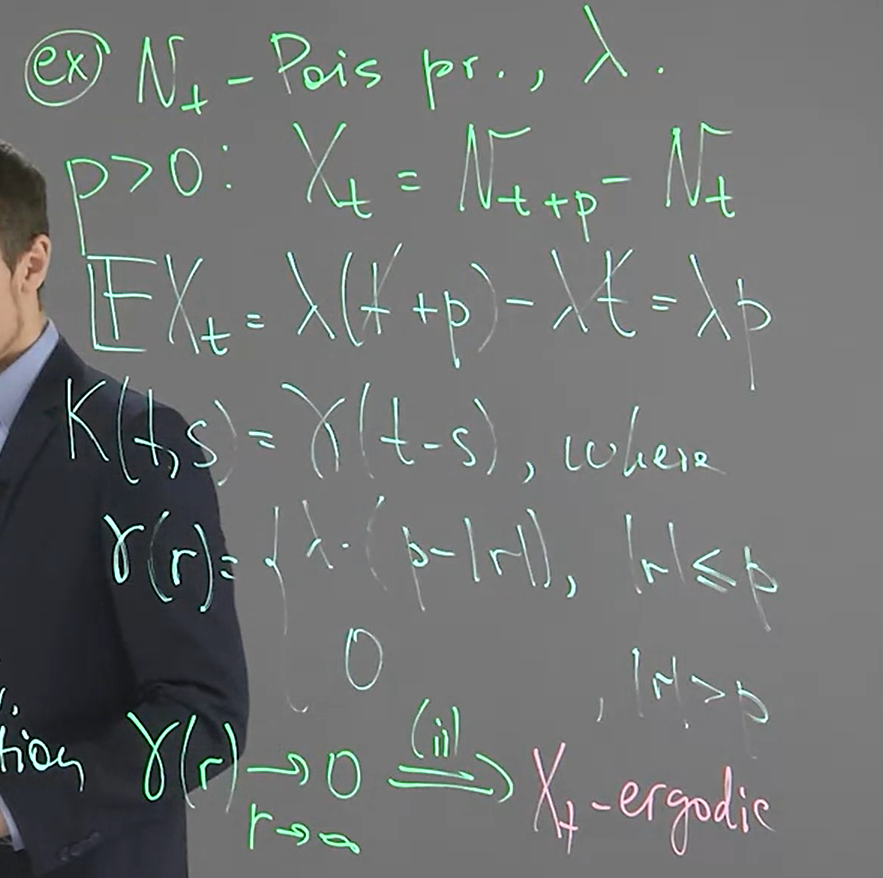 (ex) N_t - Pois pr., λ.
p>0: X_t = N_{t+p} - N_t
𝔼X_t = λ(t+p) - λt = λp
K(t,s) = γ(t-s), where
γ(r) = { λ·(p-|r|), |r| ≤ p
0, |r| > p
tion γ(r) → 0 (ii) ⟹ X_t - ergodic
r→∞